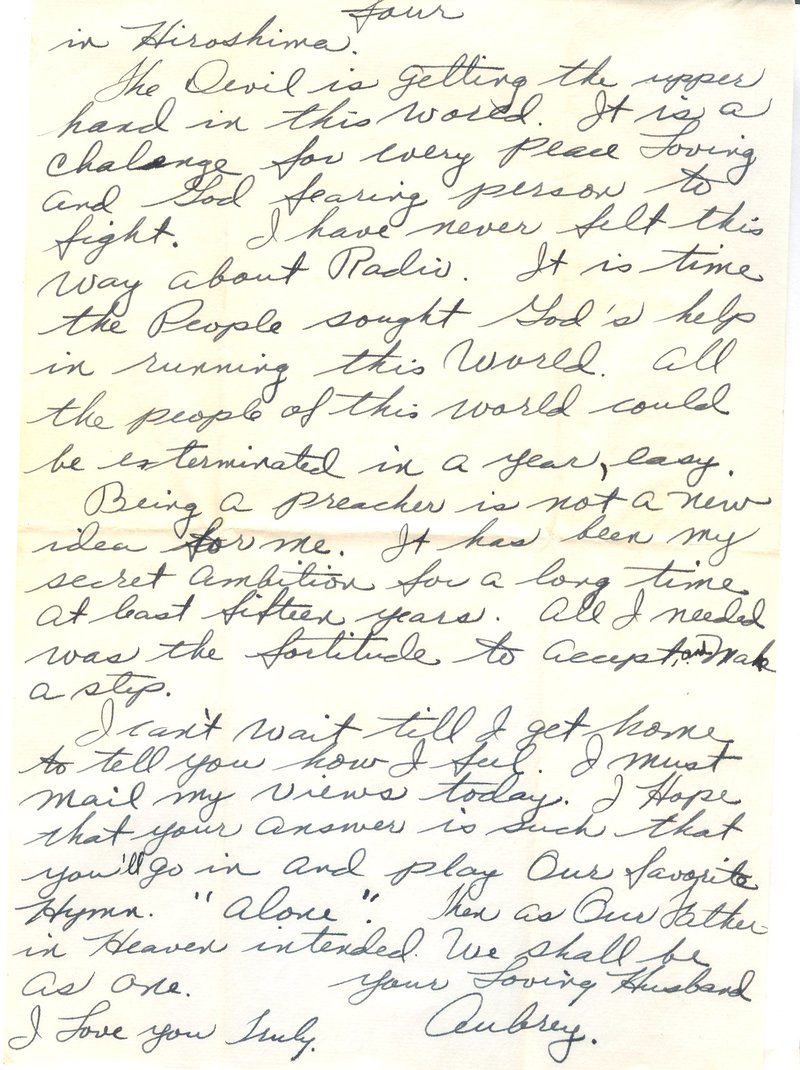 four
in Hiroshima.
The Devil is getting the upper
hand in this world. It is a
chalenge for every peace Loving
and God fearing person to
fight. I have never felt this
way about Radio. It is time
the People sought God's help
in running this World. All
the people of this world could
be exterminated in a year, easy.
Being a preacher is not a new
idea for me. It has been my
secret ambition for a long time
at least fifteen years. All I needed
was the fortitude to accept, and make
a step.
I can't wait till I get home
to tell you how I feel. I must
mail my views today. I Hope
that your answer is such that
you'll go in and play Our favorite
Hymn. "Alone". Then as Our Father
in Heaven intended. We shall be
as one. Your Loving Husband
I Love you Truly. Aubrey.